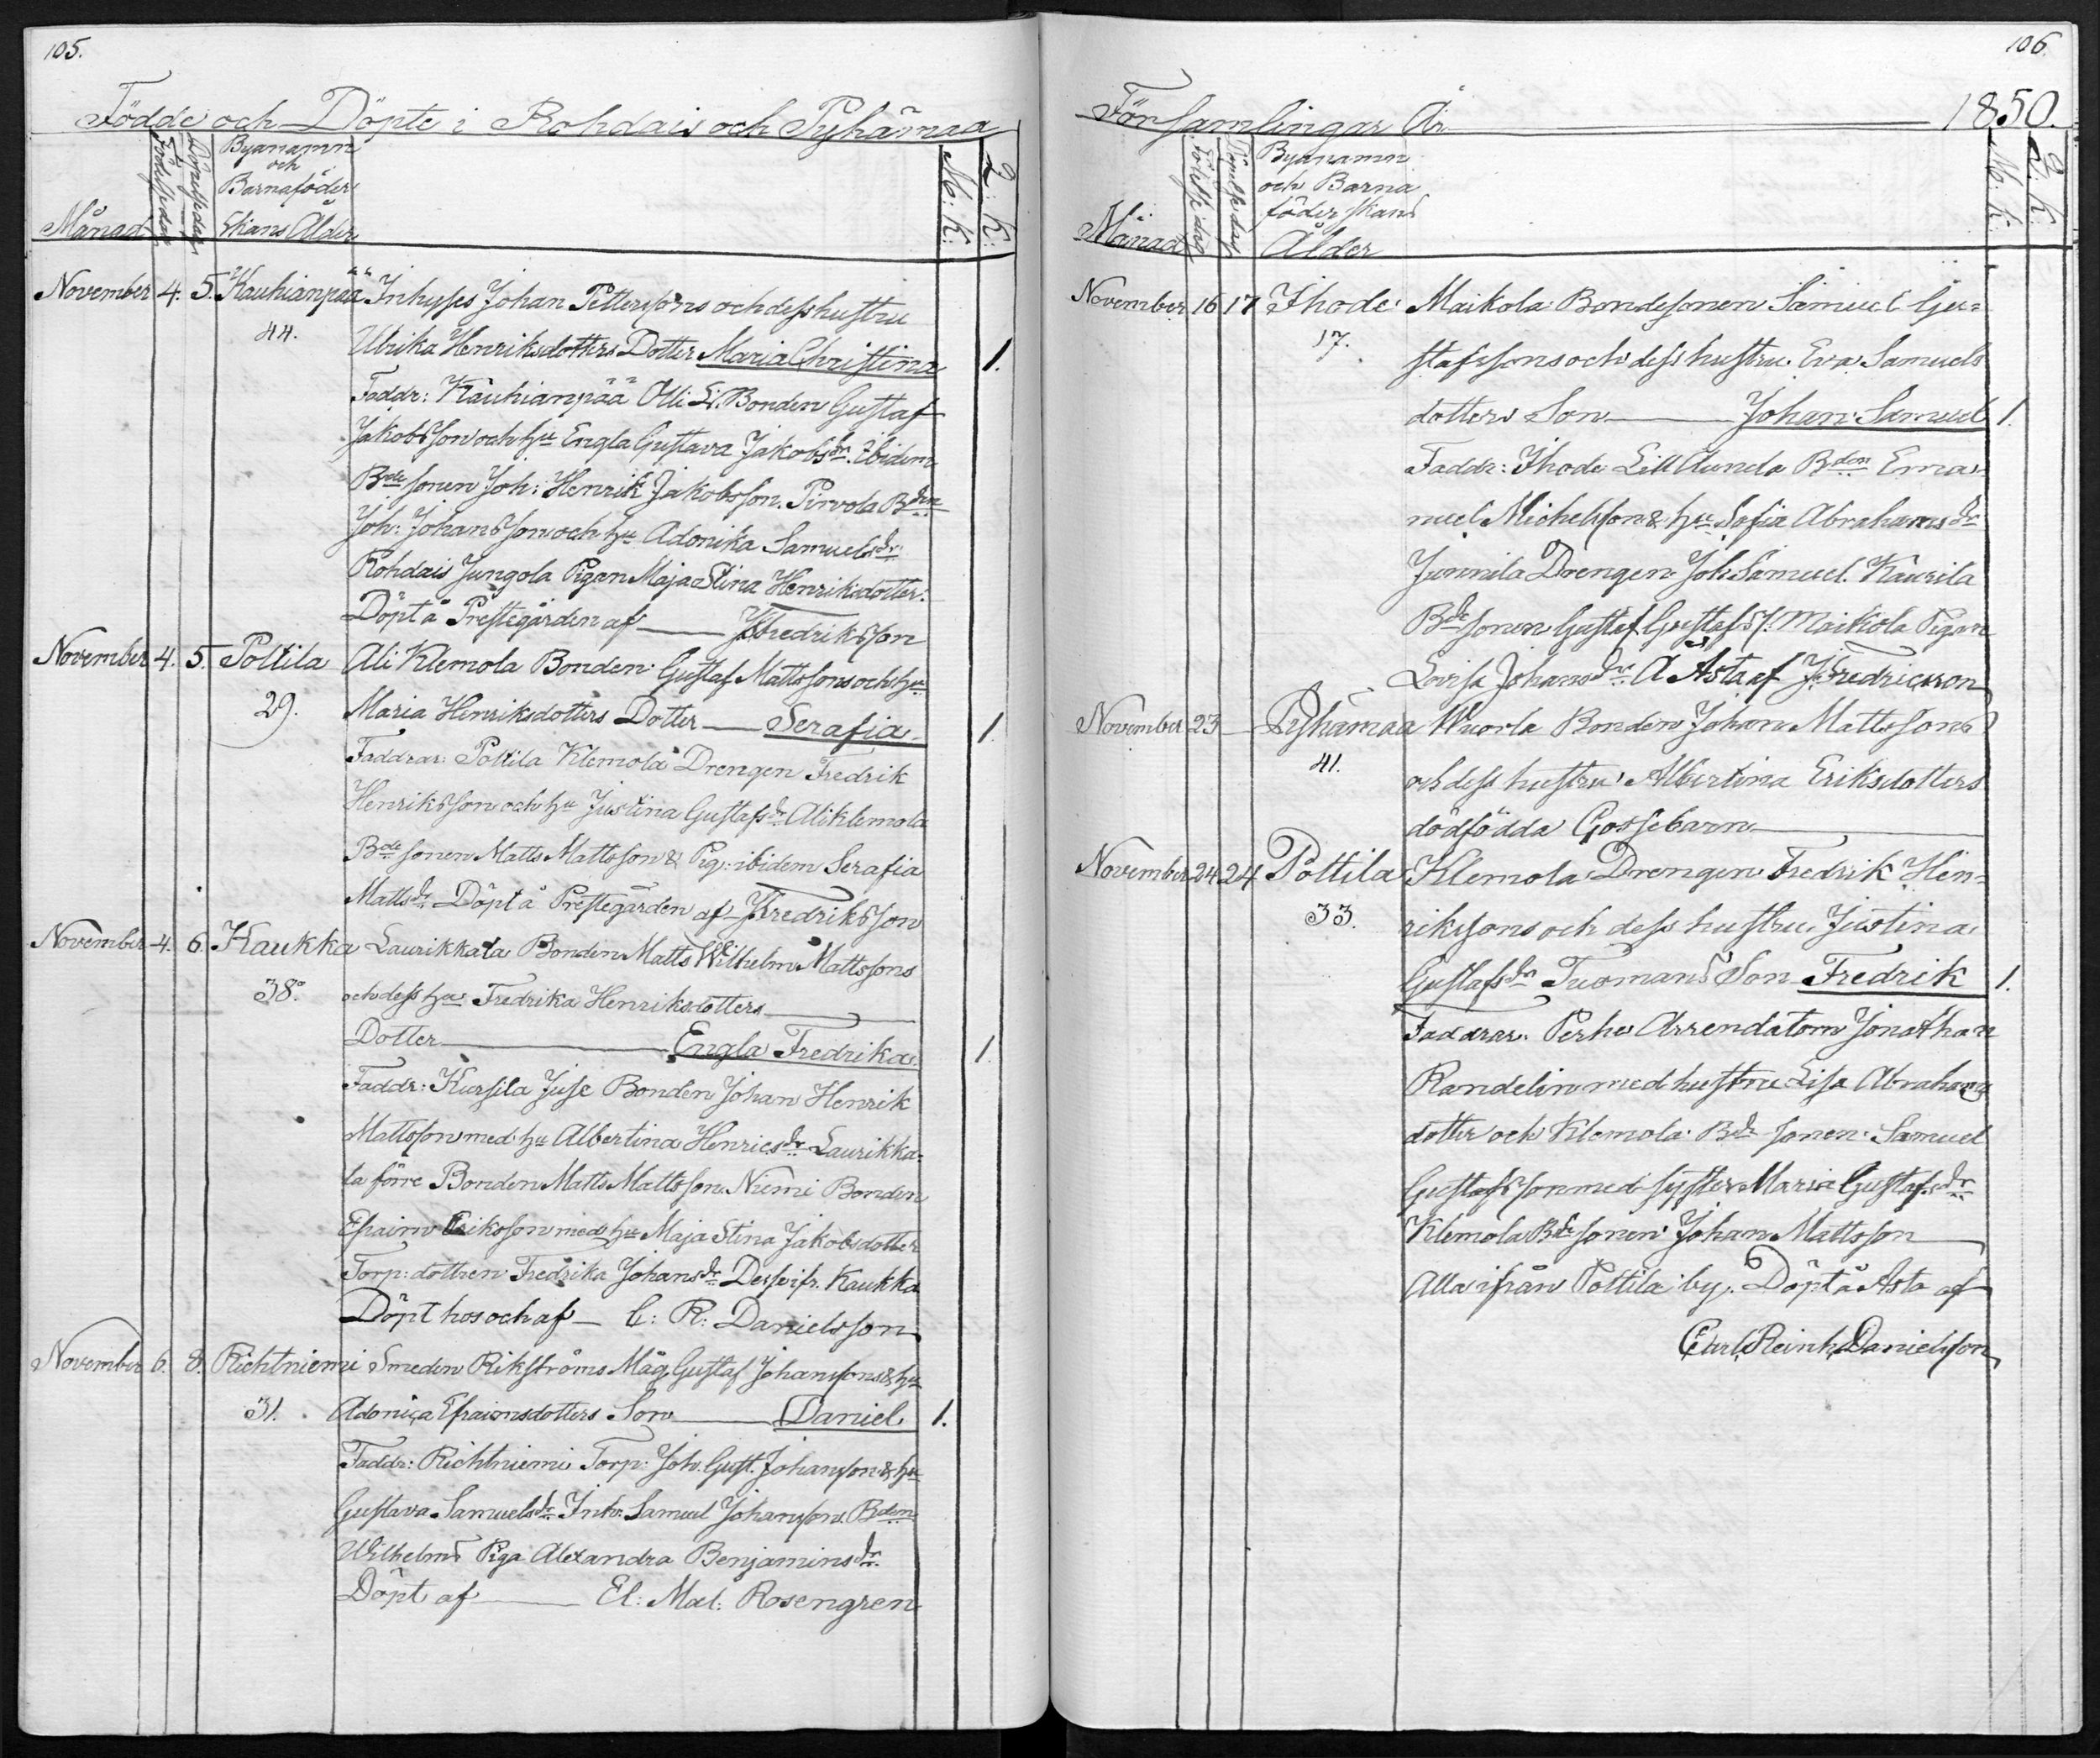 105.
Födde och Döpte i Rohdais och Pyhämaa
Månad
Födelsedag
Döpelsedag
Byanamn
och
Barnaföder
skans Ålder
M: K:
Q: K:
November 4. 5. Kauhianpää Inhyses Johan Petterssons och dess hustru
44. Ulrika Henriksdotters Dotter Maria Christina 1.
Faddr: Kauhianpää Olli L. Bonden Gustaf
Jakobsson och hu Engla Gustava Jakobsdr. Ibidem
Bde sonen Joh: Henrik Jakobsson. Pirvola Bden
Joh: Johansson och hu Adonika Samuelsdr.
Rohdais Jungola Pigan Maja Stina Henriksdotter.
Döpt å Prestegården af — J. Fredriksson
November 4. 5. Pottila Ali Klemola Bonden Gustaf Mattssons och hu
29. Maria Henriksdotters Dotter — Serafia. 1
Faddrar: Pottila Klemola Drengen Fredrik
Henriksson och hu Justina Gustafsdr Aliklemola
Bde sonen Matts Mattsson & Pig: ibidem Serafia
Mattsdr Döpt å Prestegården af J. Fredriksson
November 4. 6. Kaukka Laurikkala Bonden Matts Wilhelm Mattssons
38. och dess hu Fredrika Henriksdotters
Dotter — Engla Fredrika. 1.
Faddr: Kursila Juse Bonden Johan Henrik
Mattsson med hu Albertina Henricsdr Laurikka=
la förre Bonden Matts Mattsson. Niemi Bonden
Efraim Eriksson med hu Maja Stina Jakobsdotter
Torp: dottren Fredrika Johansdr. Kaukka
Döpt hos och af — C: R: Danielsson
November 6. 8. Richtniemi Smeden Rikströms Måg Gustaf Johanssons & hu
31. Adonica Efraimsdotters Son — Daniel. 1.
Faddr: Richtniemi Torp: Joh. Gust. Johansson & hu
Gustava Samuelsdr Inh: Samuel Johansson. Bden
Wilhelms Piga Alexandra Benjaminsdr.
Döpt af — El: Mat: Rosengren
106.
Församlingar År 1850.
Månad
Födelse dag
Döpelse dag
Byanamn
och Barna
föderskans
Ålder
M: K:
Q: K:
November 16 17 Ihode Maikola Bondesonen Samuel Gu=
17. stafssons och dess hustru Eva Samuels
dotters Son — Johan Samuel 1.
Faddr: Ihode Lill Aunela Bden Ema
nuel Michelsson & hu Sofia Abrahamsdr
Junnila Drengen Joh Samuel. Kaurila
Bde sonen Gustaf Gustafss. Maikola Pigan
Lovisa Johansdr. Å Asta af J. Fredricsson
November 23 — Pyhämaa Wuorla Bonden Johan Mattssons
41. och dess hustru Albertina Eriksdotters
dödfödda Gossebarn
November 24 24 Pottila Klemola Drengen Fredrik Hen=
33. rikssons och dess hustru Justina
Gustafsdr Tuomans Son Fredrik 1.
Faddrar: Perho Arrendatorn Jonathan
Randelin med hustru Lisa Abrahams
dotter och Klemola Bde sonen Samuel
Gustafsson med syster Maria Gustafsdr
Klemola Bde sonen Johan Mattsson
Alla ifrån Pottila by. Döpt å Asta af
Carl Reinh. Danielsson